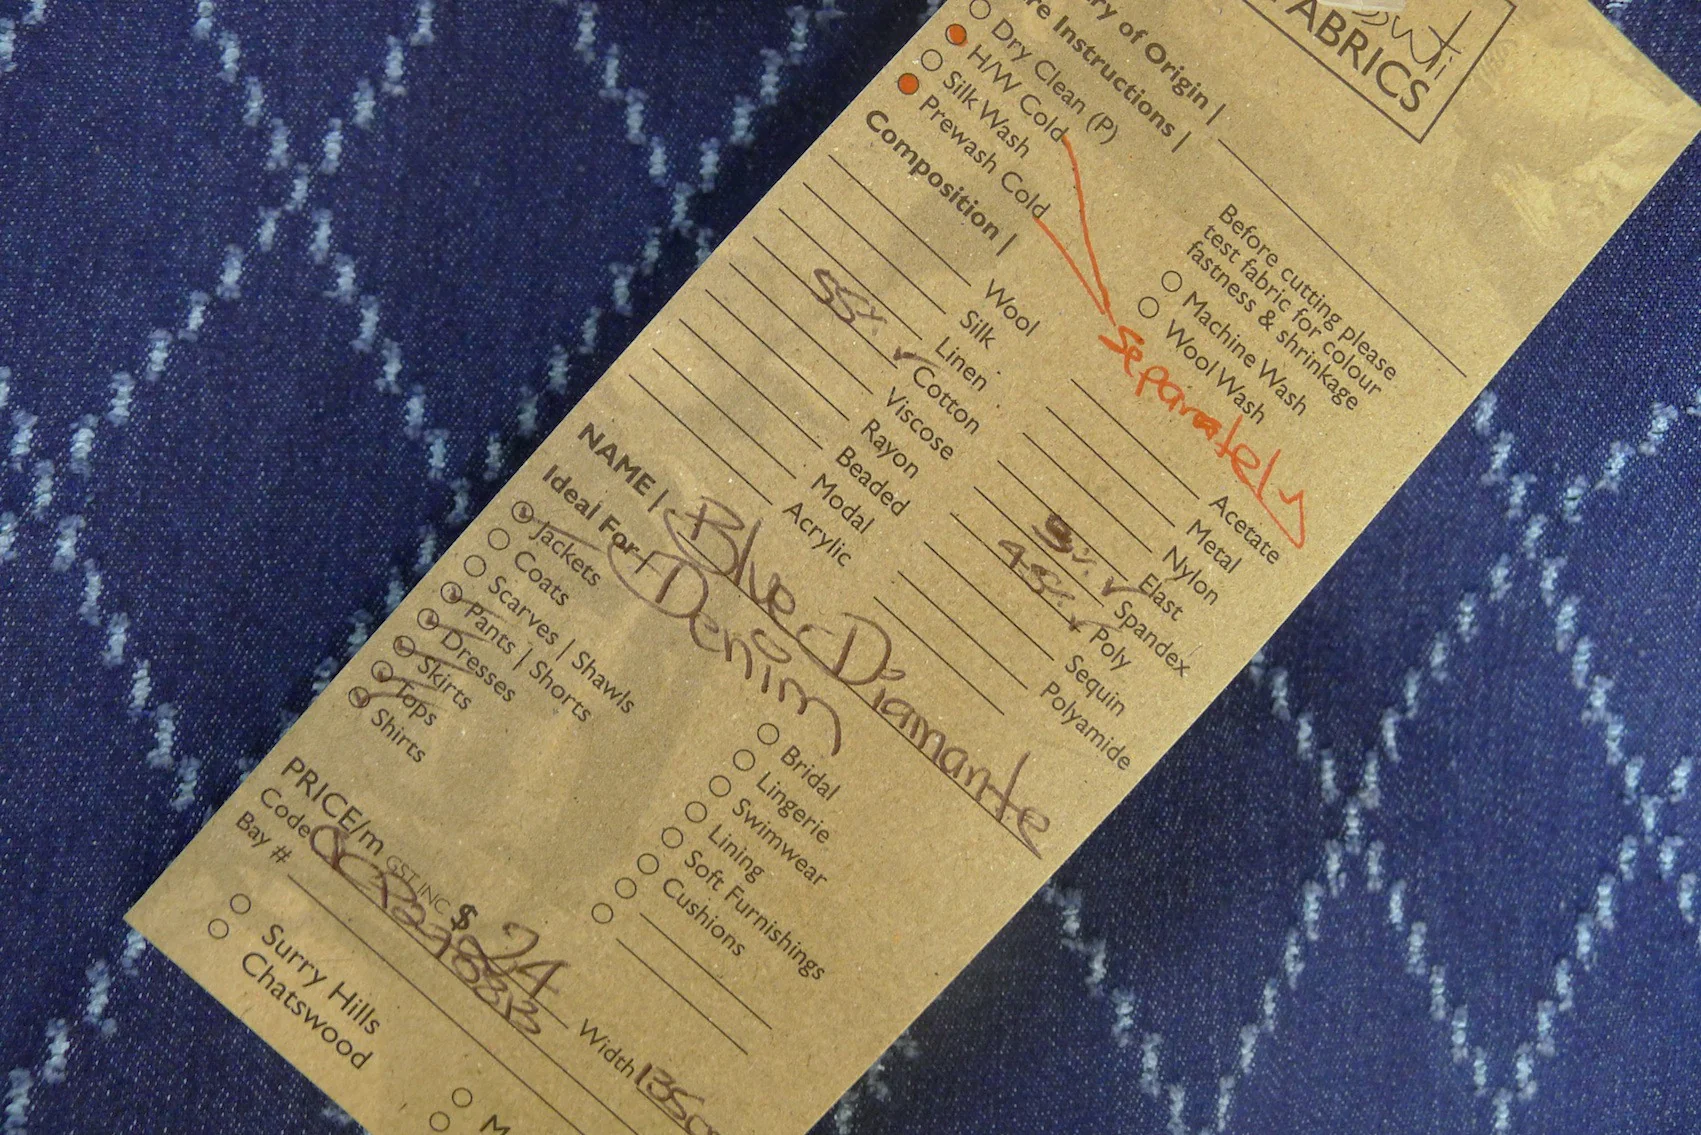 FABRICS
ry of Origin |
re Instructions |
Dry Clean (P)
H/W Cold
Silk Wash
Prewash Cold
Separately
Before cutting please
test fabric for colour
fastness & shrinkage
Machine Wash
Wool Wash
Composition |
Wool
Silk
Linen
55% Cotton
Viscose
Rayon
Beaded
Modal
Acrylic
Acetate
Metal
Nylon
Elast
Spandex
Poly
Sequin
Polyamide
NAME | Blue Diamante
Denim
Ideal For
Jackets
Coats
Scarves | Shawls
Pants | Shorts
Dresses
Skirts
Tops
Shirts
Bridal
Lingerie
Swimwear
Lining
Soft Furnishings
Cushions
PRICE/m GST INC $ 24
Width 135c
Code
Bay #
Surry Hills
Chatswood